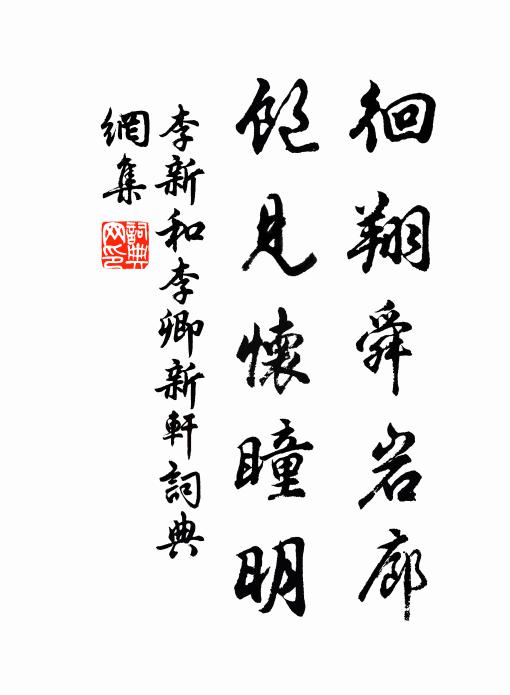 徊翔舜岩廊
飽見懷瞳明
李新和李卿新軒詞典
網集
詞典網印